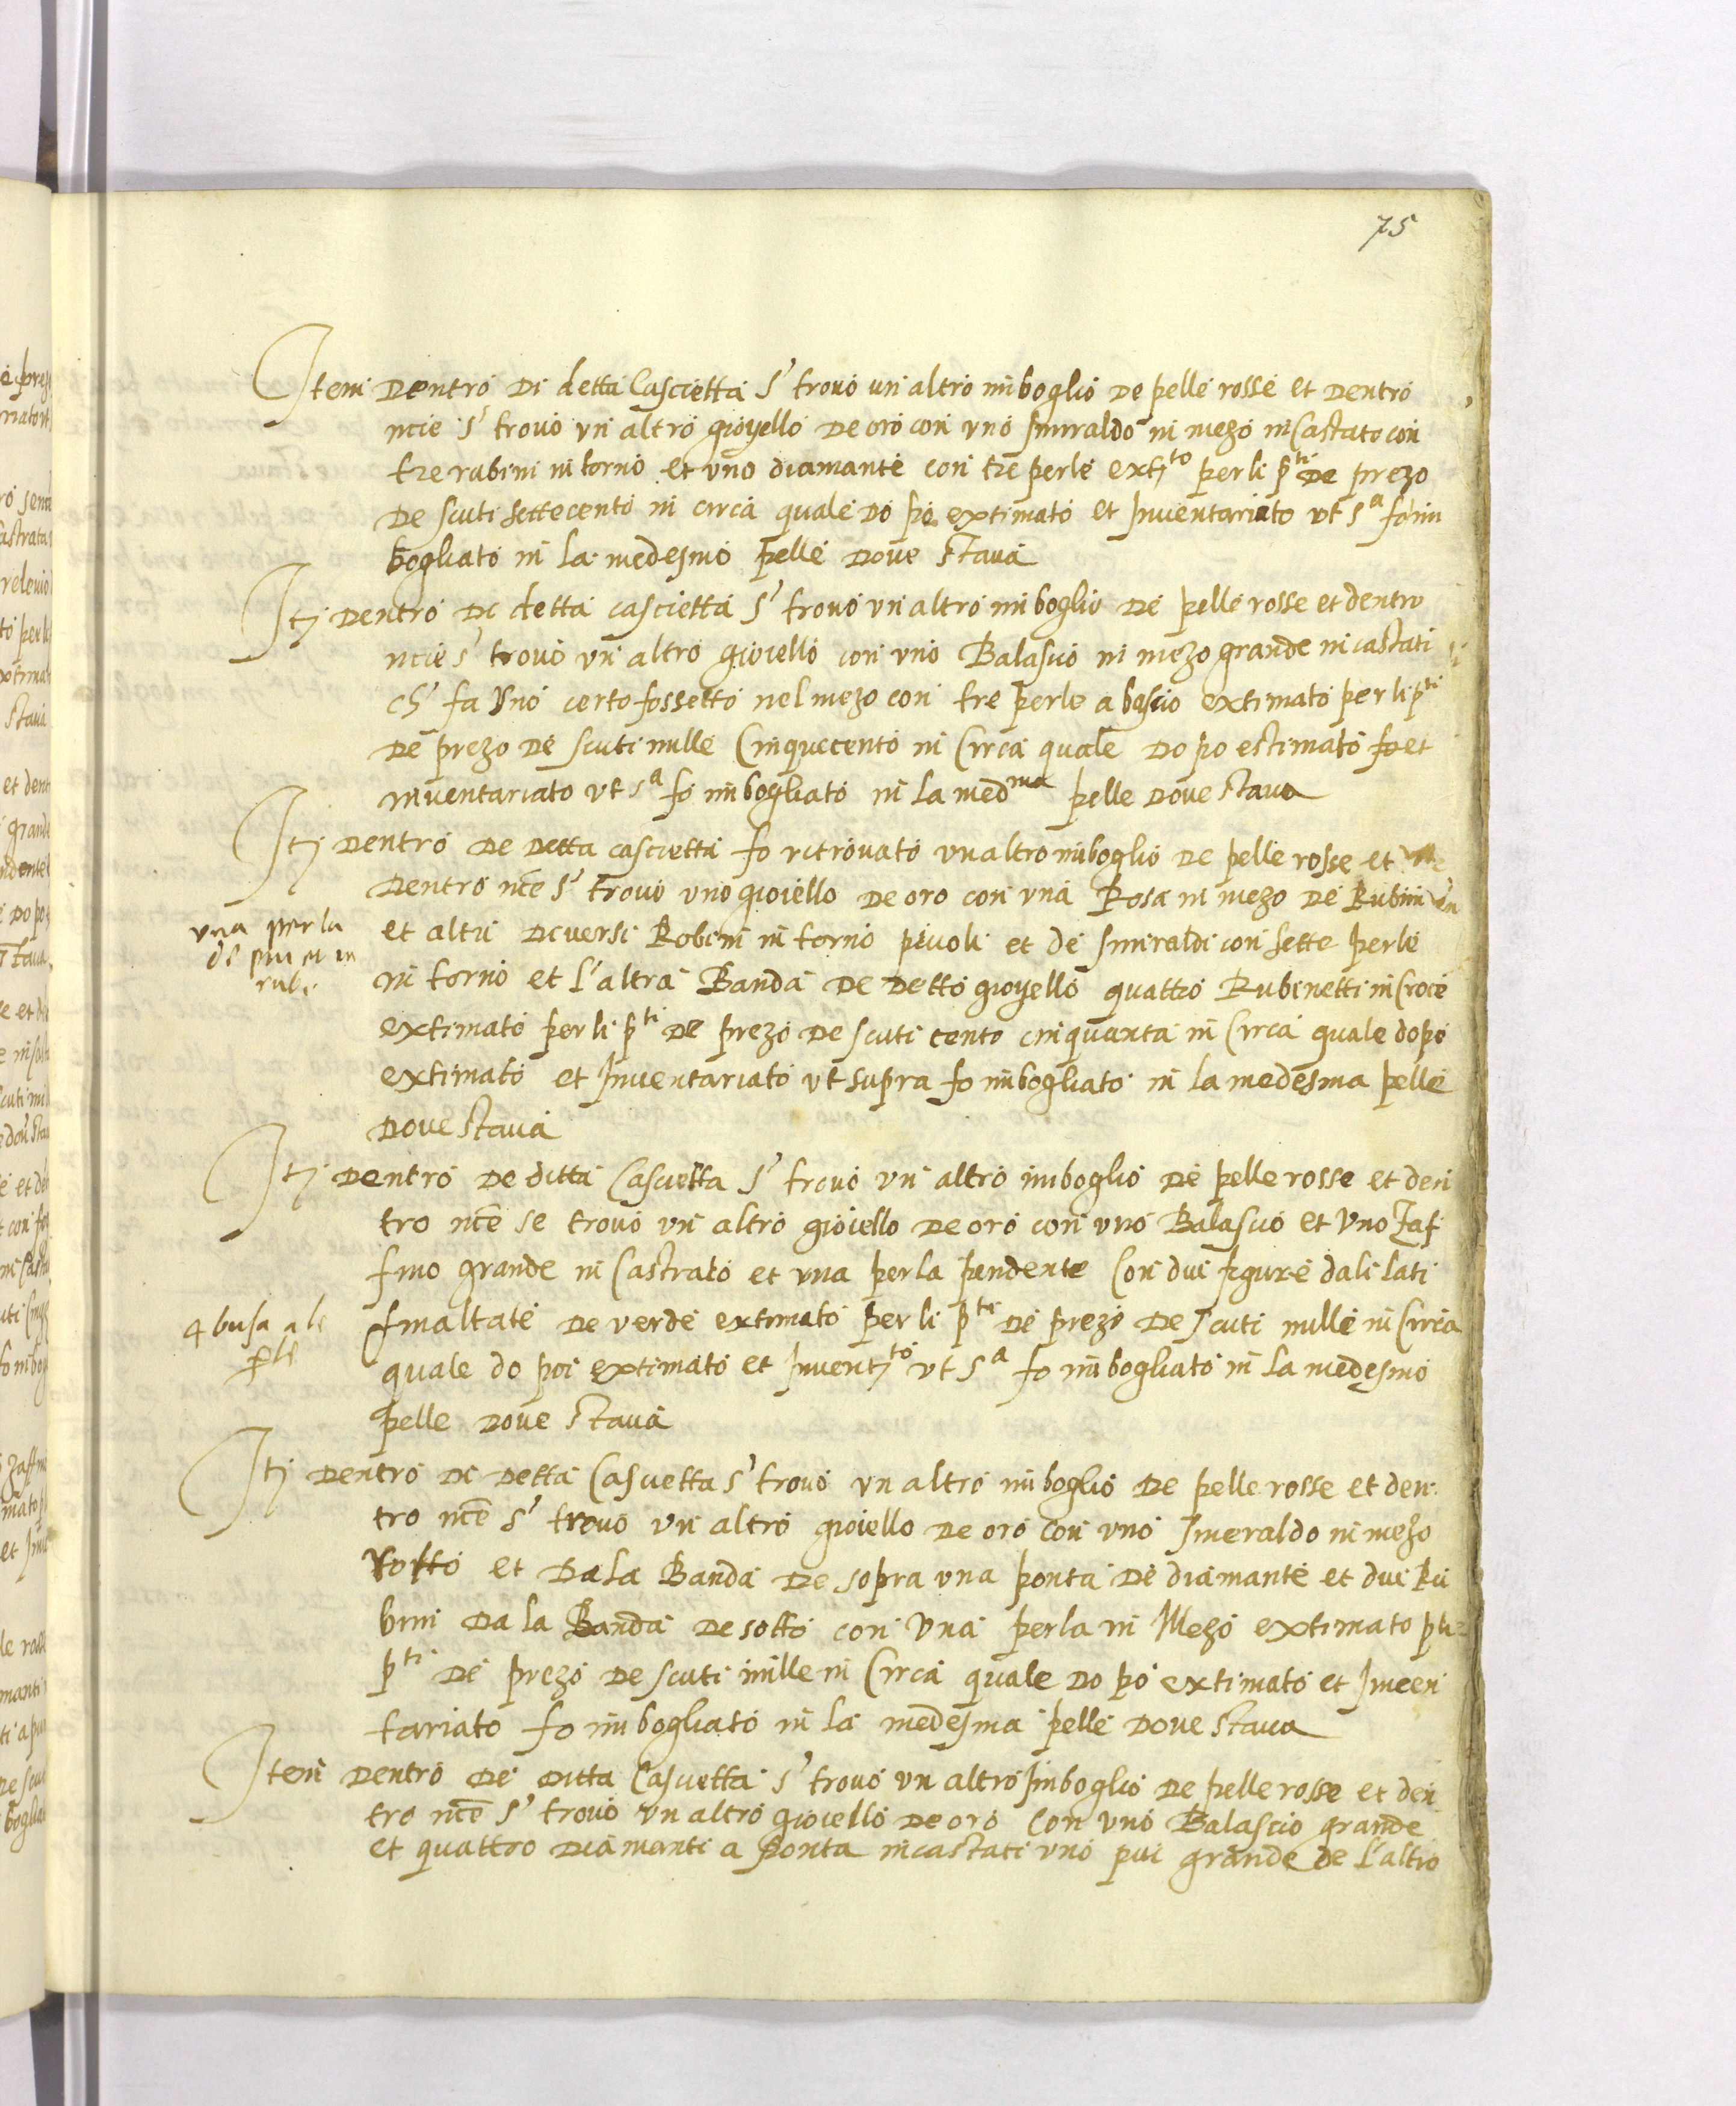 75
Item Dentro Di detta Cascietta s' trovo un altro imboglio De pelle rosse et Dentro
ncie s' trovo vn altro gioyello De oro con vno smiraldo in mezo incastato con
tre rubini in torno et vno diamante con tre perle extito per li pti De prezo
De scuti settecento in circa quale do po extimato et Inventariato ut sa fo im
bogliato in la medesmo pelle Dove stava
Itj Dentro Di detta cascietta s' trovo vn altro imboglio De pelle rosse et dentro
ncie s' trovo vn altro gioiello con vno Balascio in mezo grande incastati
ch' fa vno certo fossetto nel mezo con tre perle a bascio extimato per li pti
De prezo De scuti mille Cinquecento in Circa quale Do po estimato fo et
inventariato vt sa fo imbogliato in la medma pelle Dove stava
Itj Dentro De Detta cascietta fo ritrovato vnaltro imboglio De pelle rosse et
Dentro nce s' trovo vno gioiello De oro con vna Rosa in mezo De Rubini
vna perla
de piu et in
rub.
et altri Diversi Robini in torno picoli et de smiraldi con sette perle
in torno et l'altra Banda De Detto gioyello quattro Rubinetti in Croce
extimato per li pti De prezo De scuti cento cinquanta in Circa quale dopo
extimato et Inventariato vt supra fo imbogliato in la medesma pelle
Dove stava
Itj Dentro De ditta Cascietta s' trovo vn altro imboglio De pelle rosse et den
tro nce se trovo vn altro gioiello De oro con vno Balascio et Vno Zaf
fino grande in Castrato et vna perla pendente Con dui figure dali lati
4 busa a le
ple
smaltate De verde extimato per li pti De prezo De scuti mille in Circa
quale do poi extimato et Inventjto vt sa fo imbogliato in la medesmo
pelle Dove stava
Itj Dentro Di Detta Cascietta s' trovo vn altro imboglio De pelle rosse et den
tro nce s' trovo vn altro gioiello De oro con vno smeraldo in mezo
et Da La Banda De sopra vna ponta De diamante et dui Ru
bini Da la Banda De sotto con Una perla in Mezo extimato p li
pti De prezo De scuti mille in Circa quale Do po extimato et Inven
tariato fo imbogliato in la medesma pelle Dove stava
Item Dentro De Ditta Cascietta s' trovo vn altro Imboglio De pelle rosse et den
tro nce s' trovo vn altro gioiello De oro Con vno Balascio grande
et quattro Diamanti a ponta incastati vno piu grande de l'altro